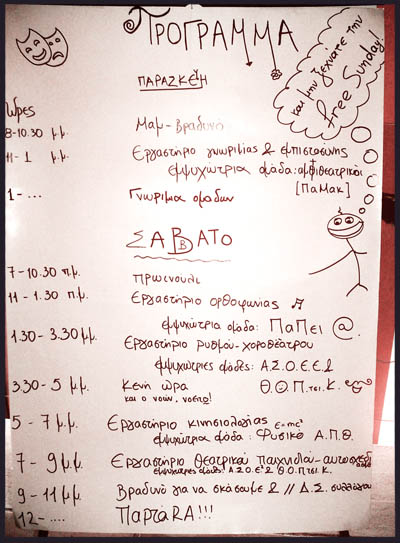 ΠΡΟΓΡΑΜΜΑ
και μην ξεχνάτε την
Free Sunday!
ΠΑΡΑΣΚΕΥΗ
Ώρες
8-10.30 μ.μ. Μαμ-Βραδυνό
11-1 μ.μ. Εργαστήριο γνωριμίας & εμπιστοσύνης
εμψυχώτρια ομάδα: αμφιθεατρικοί
[ΠαΜακ]
1-... Γνωριμία ομάδων
ΣΑΒΒΑΤΟ
7-10.30 π.μ. Πρωινούλι
11-1.30 π.μ. Εργαστήριο ορθοφωνίας ♫
εμψυχώτρια ομάδα: ΠαΠει @.
1.30-3.30 μ.μ. Εργαστήριο ρυθμού-χοροθεάτρου
εμψυχώτριες ομάδες: Α.Σ.Ο.Ε.Ε
3.30-5 μ.μ. Κενή ώρα Θ.Ο.Π.τσι.Κ.
και ο νοών, νοείτω!
5-7 μ.μ. Εργαστήριο κινησιολογίας E=mc²
εμψυχώτρια ομάδα: Φυσικό Α.Π.Θ.
7-9 μ.μ. Εργαστήριο θεατρικού παιχνιδιού-αυτοσχεδ
εμψυχώτριες ομάδες: Α.Σ.Ο.Ε.Ε Θ.Ο.Π.τσι.Κ.
9-11 μμ Βραδυνό για να σκάσουμε & // Δ.Σ. συλλόγου
12-.... ΠαρτάRA!!!